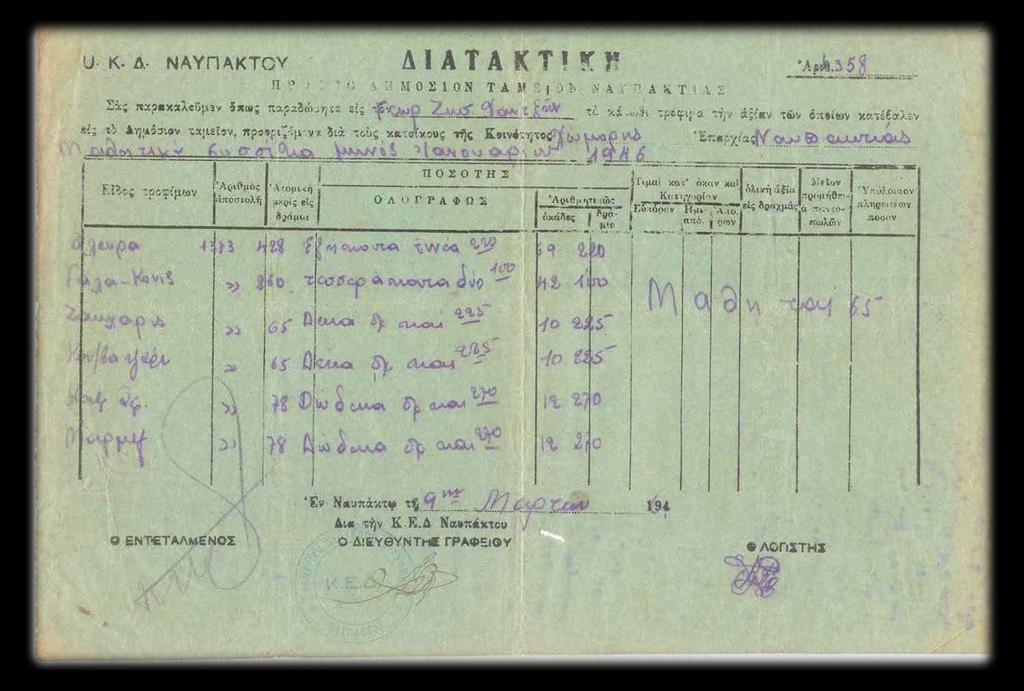 Υ. Κ. Δ. ΝΑΥΠΑΚΤΟΥ ΔΙΑΤΑΚΤΙΚΗ Ἀριθ. 358
ΔΗΜΟΣΙΟΝ ΤΑΜΕΙΟΝ ΝΑΥΠΑΚΤΙΑΣ
Σᾶς παρακαλοῦμεν ὅπως παραδώσητε εἰς τὸν Γεωρ τὰ κάτωθι τρόφιμα τὴν ἀξίαν τῶν ὁποίων κατέβαλεν
εἰς τὸ Δημόσιον ταμεῖον, προοριζόμενα διὰ τοὺς κατοίκους τῆς Κοινότητος Ἐπαρχίας Ναυπακτίας
Μαθητικά συσσίτια μηνός Ιανουαρίου 1946
Εἶδος τροφίμων Ἀριθμὸς ἀποστολῆ Ἀτομικὴ μερὶς εἰς δράμια ΠΟΣΟΤΗΣ
ΟΛΟΓΡΑΦΩΣ Ἀριθμητικῶς
ὀκάδες δράμια
Τιμαὶ κατ' ὀκαν καὶ Κατηγορίαν
Εὐπόρων Ἡμιαπό. Ἀπόρων
ὁλικὴ ἀξία εἰς δραχμὰς Μεῖον προμήθεια παντοπωλῶν Ὑπόλοιπον πληρωτέον ποσον
Αλευρα 1373 428 Εξήκοντα εννέα 220 69 220
Γαλα-Κονις » 260 τεσσεράκοντα δυο 100 42 100
Ζακχαρις » 65 Δεκα οκ και 225 10 225
» 65 Δεκα οκ και 225 10 225
» 78 Δώδεκα οκ και 270 12 270
» 78 Δώδεκα οκ και 270 12 270
Μαθηταί 65
Ἐν Ναυπάκτῳ τῇ 9ῃ Μαρτίου 1946
Δια τὴν Κ.Ε.Δ Ναυπάκτου
Ο ΕΝΤΕΤΑΛΜΕΝΟΣ Ο ΔΙΕΥΘΥΝΤΗΣ ΓΡΑΦΕΙΟΥ Ο ΛΟΓΙΣΤΗΣ
Κ.Ε.Δ
ΝΑΥΠΑΚΤΟΥ